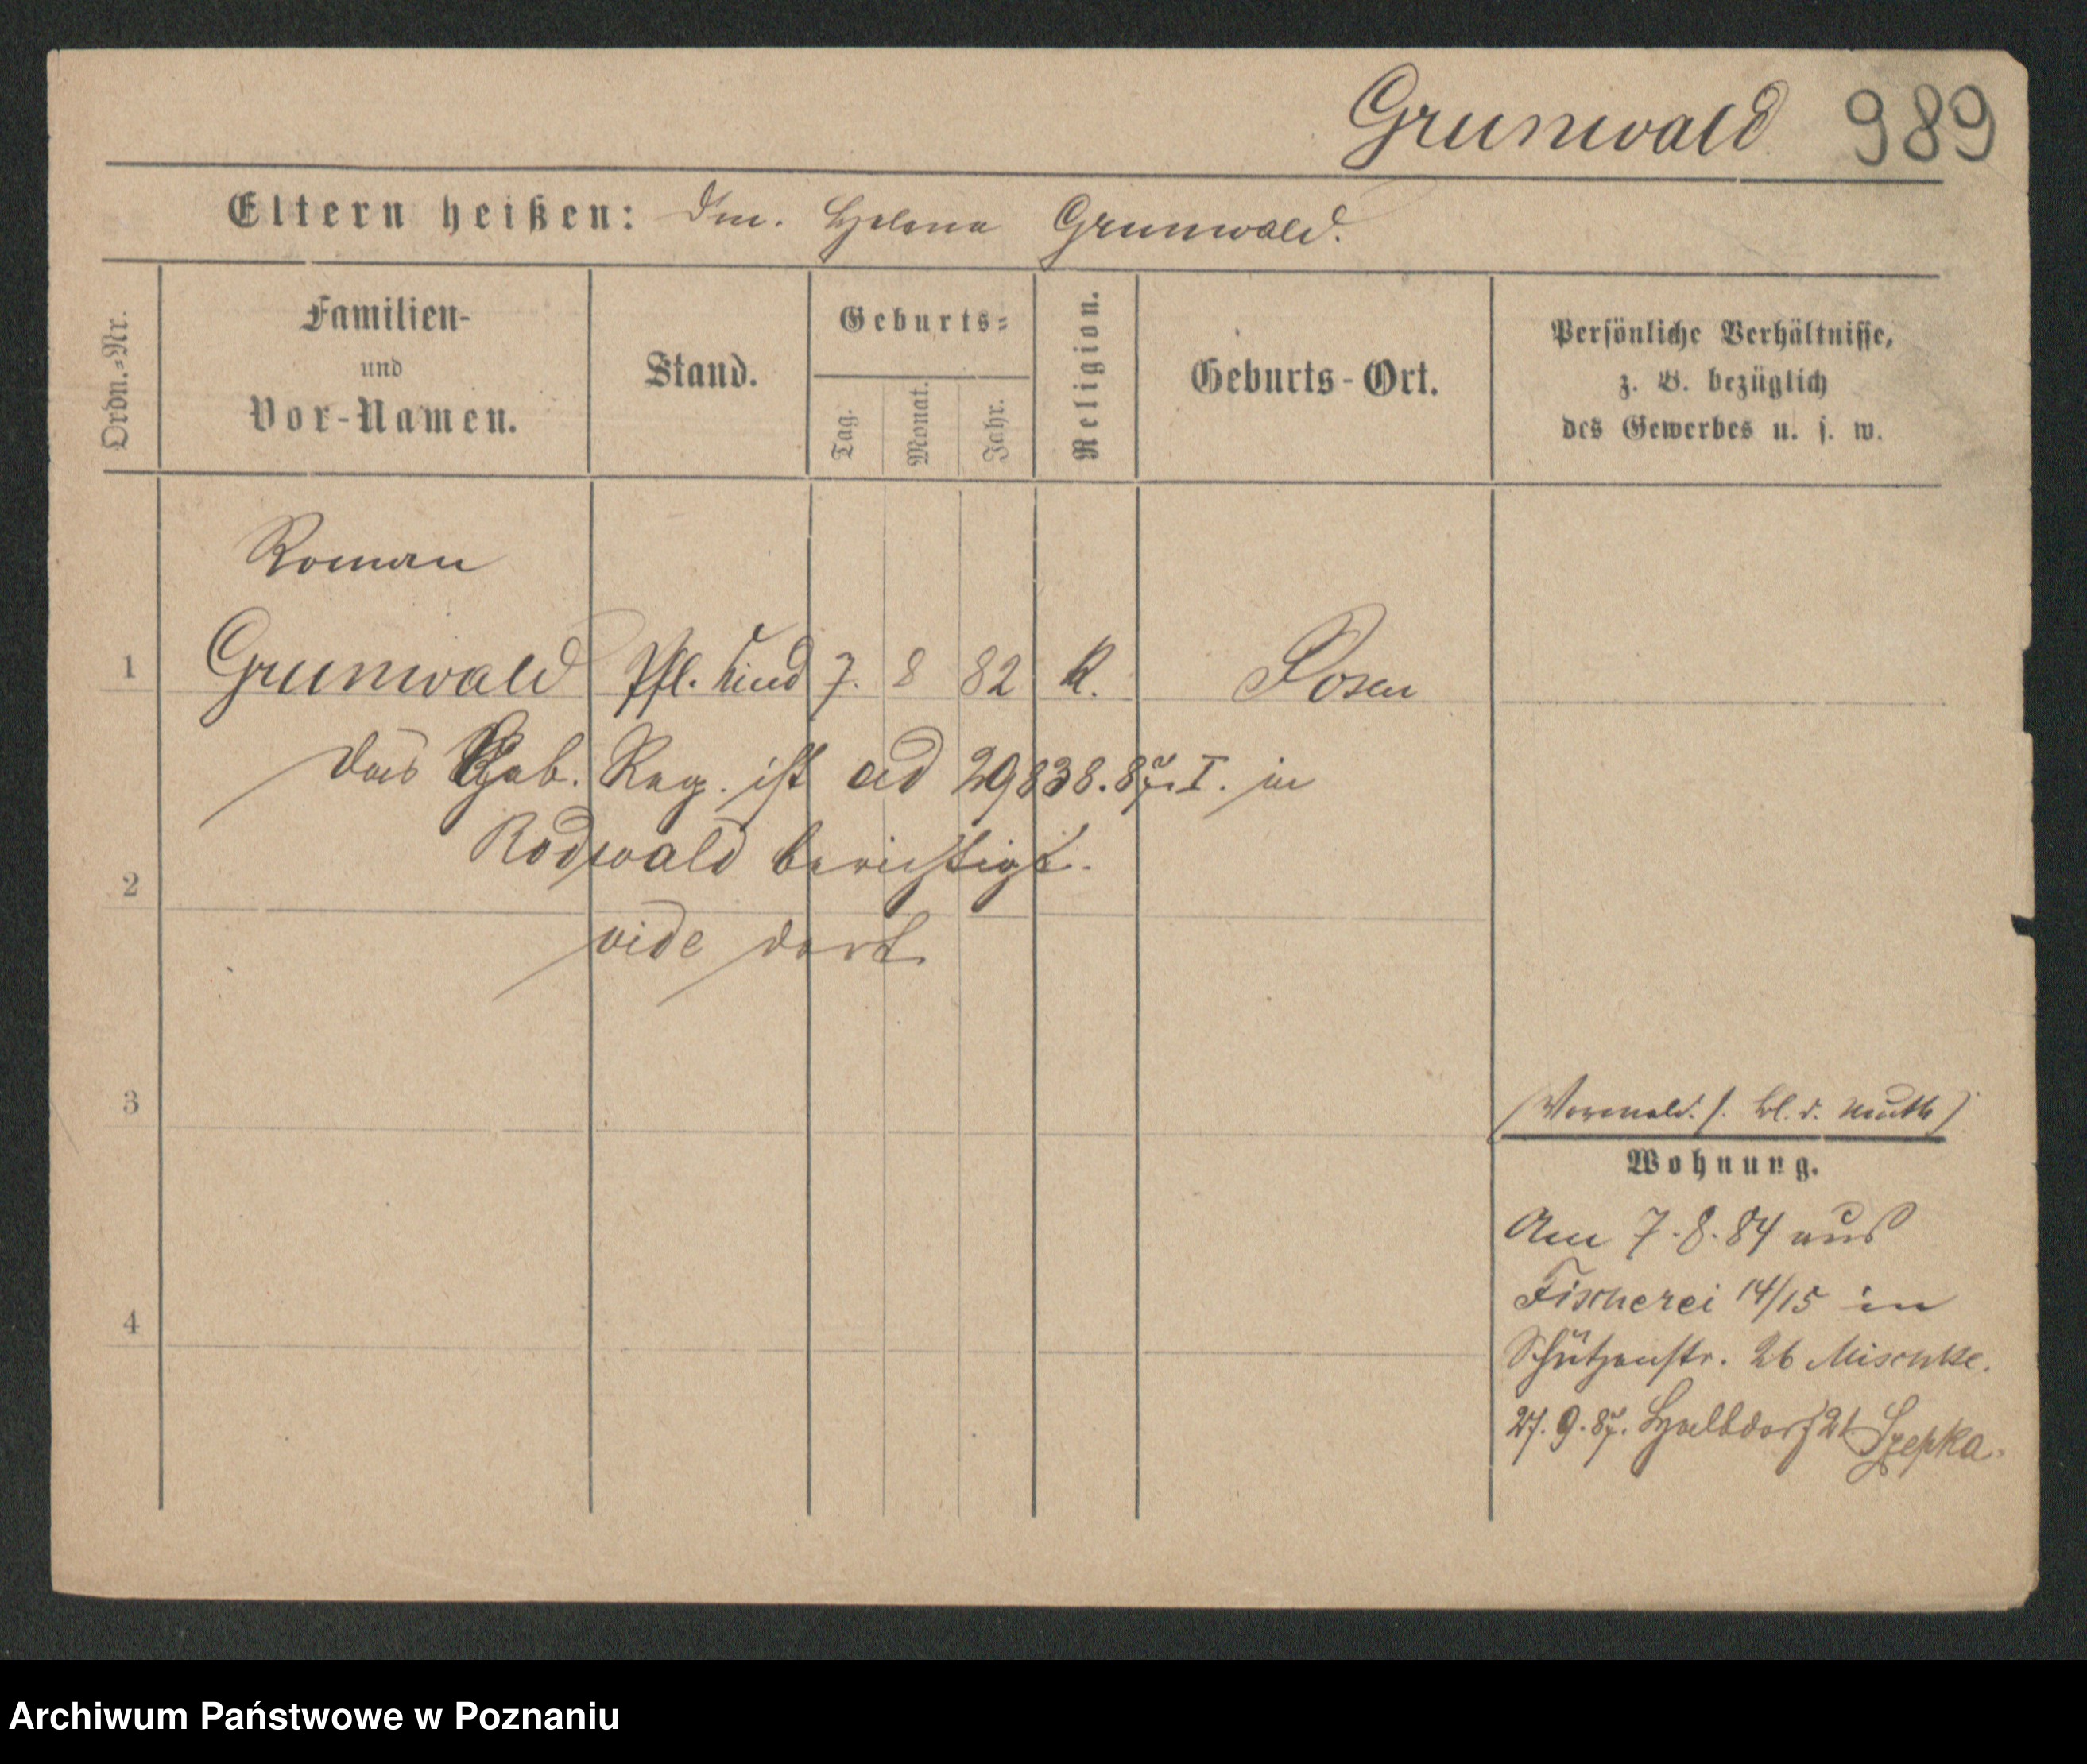 Grunwald 989
Eltern heißen: Dm. Helena Grunwald.
Ordn.-Nr.
Familien-
und
Vor-Namen.
Stand.
Geburts-
Tag.
Monat.
Jahr.
Religion.
Geburts-Ort.
Persönliche Verhältnisse,
z. B. bezüglich
des Gewerbes u. s. w.
Roman
1 Grunwald Pfl. Kind 7. 8 82 K. Posen
das Geb. Reg. ist ad 29838.87.I. in
Rodwald berichtigt.
2
vide dort
3
(Vormuld. s. bl. d. Mutter)
Wohnung.
Am 7.8.84 aus
Fischerei 14/15 in
4
Schützenstr. 26 Mischke.
27.9.87. Halbdorf 21 Szepka.
Archiwum Państwowe w Poznaniu